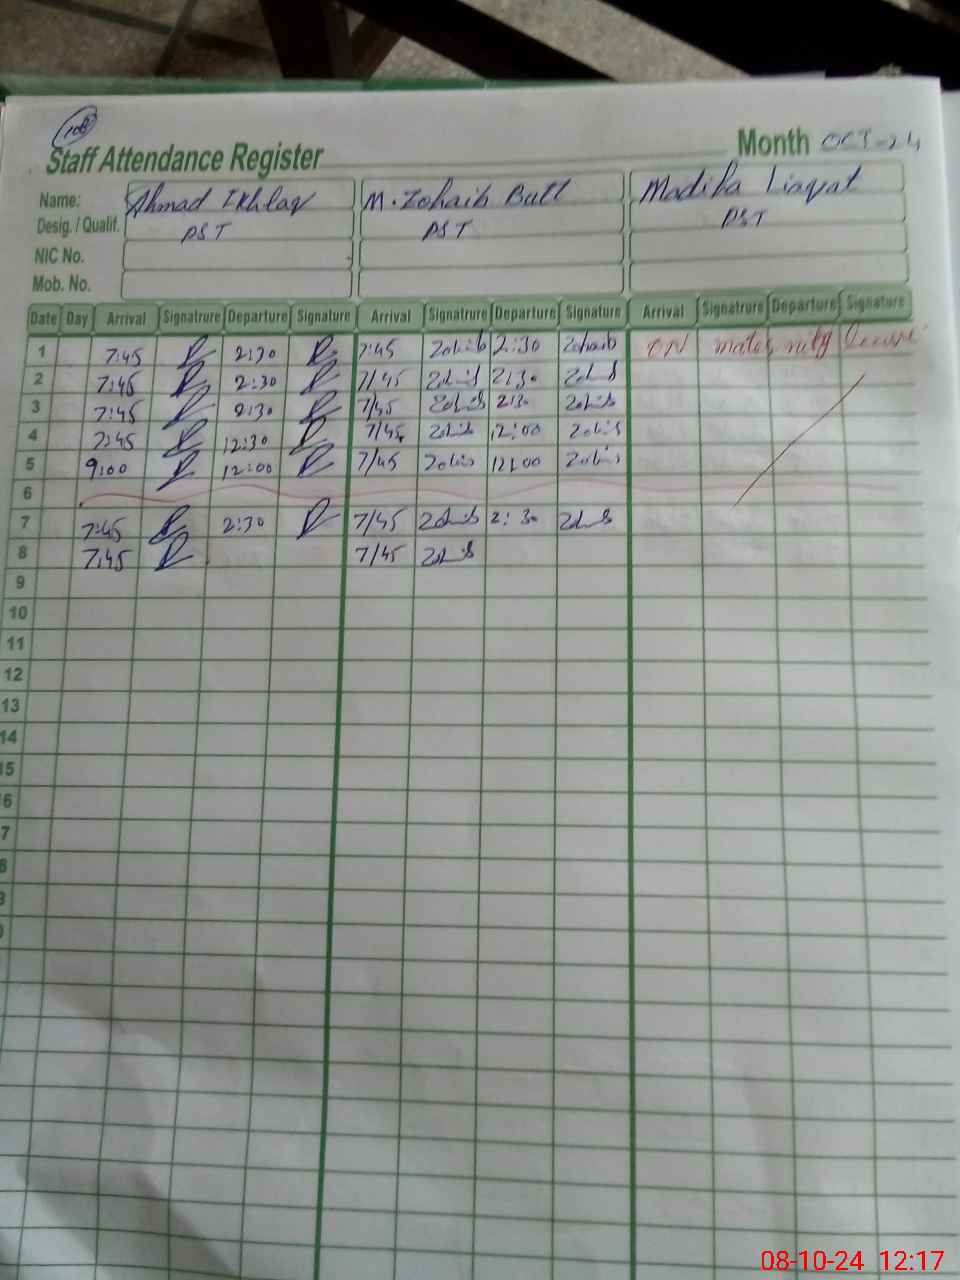 108
Staff Attendance Register Month OCT-24
Name: Ahmad Ikhlaq M. Zohaib Butt Madiha Liaqat
Desig. / Qualif. PST PST PST
NIC No.
Mob. No.
Date Day Arrival Signatrure Departure Signature Arrival Signatrure Departure Signature Arrival Signatrure Departure Signature
1 7:45 2:30 7:45 Zohaib 2:30 Zohaib ON maternity
2 7:45 2:30 7/45 Zohaib 2:30 Zohaib
3 7:45 2:30 7/45 Zohaib 2:30 Zohaib
4 7:45 12:30 7/45 Zohaib 12:00 Zohaib
5 9:00 12:00 7/45 Zohaib 12:00 Zohaib
6
7 7:45 2:30 7/45 Zohaib 2:30 Zohaib
8 7:45 7/45 Zohaib
9
10
11
12
13
14
15
6
7
8
9
08-10-24 12:17